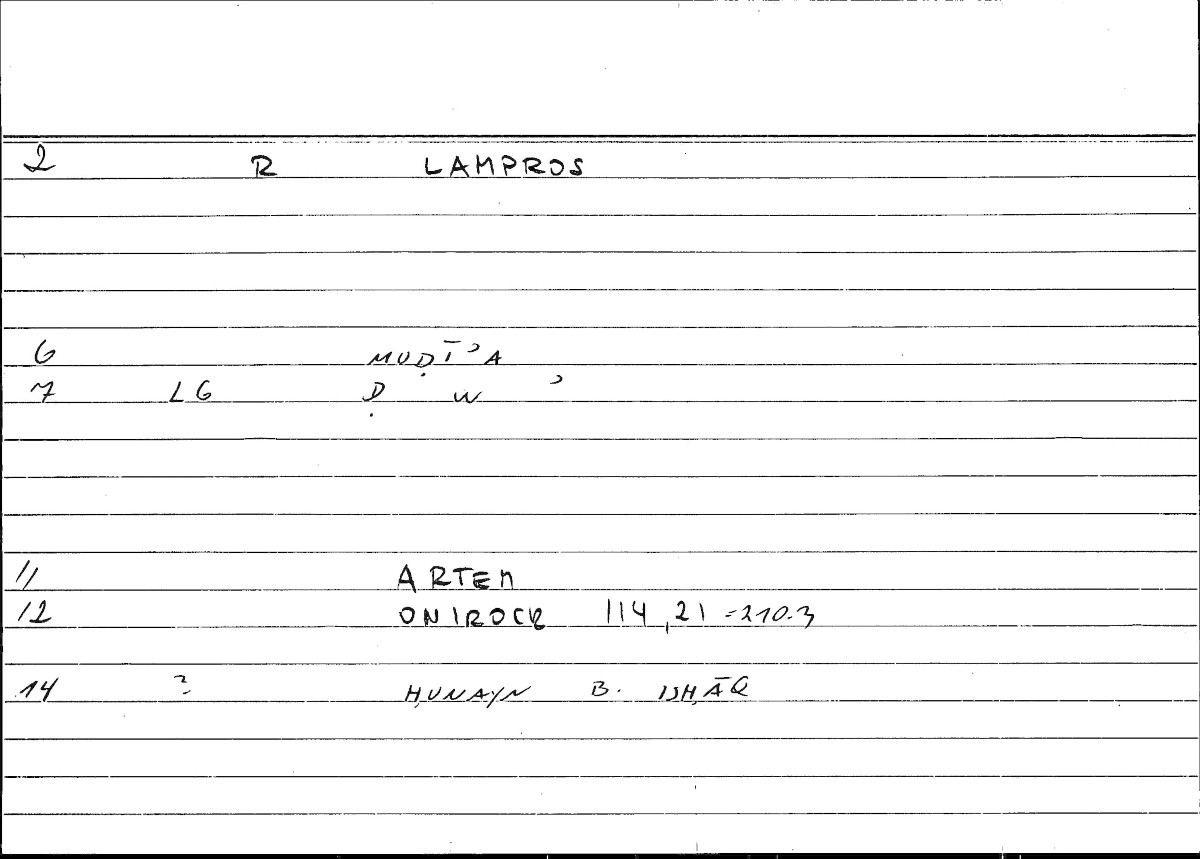 2 R LAMPROS
6 MUḌĪʾA
7 LG Ḍ W ʾ
11 ARTEM
12 ONIROCR 114,21 =210.3
14 ? ḤUNAYN B. ISḤĀQ